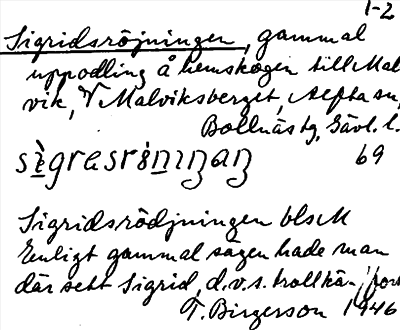 1-2
Sigridsröjningen, gammal
uppodling å hemskogen till Mal
vik, V Malviksberget, Alfta sn,
Bollnäs tg, Gävl. l.
69
Sigridsrödjningen bls M
Enligt gammal sägen hade man
där sett Sigrid, d.v.s. trollkän
T. Birgerson 1946